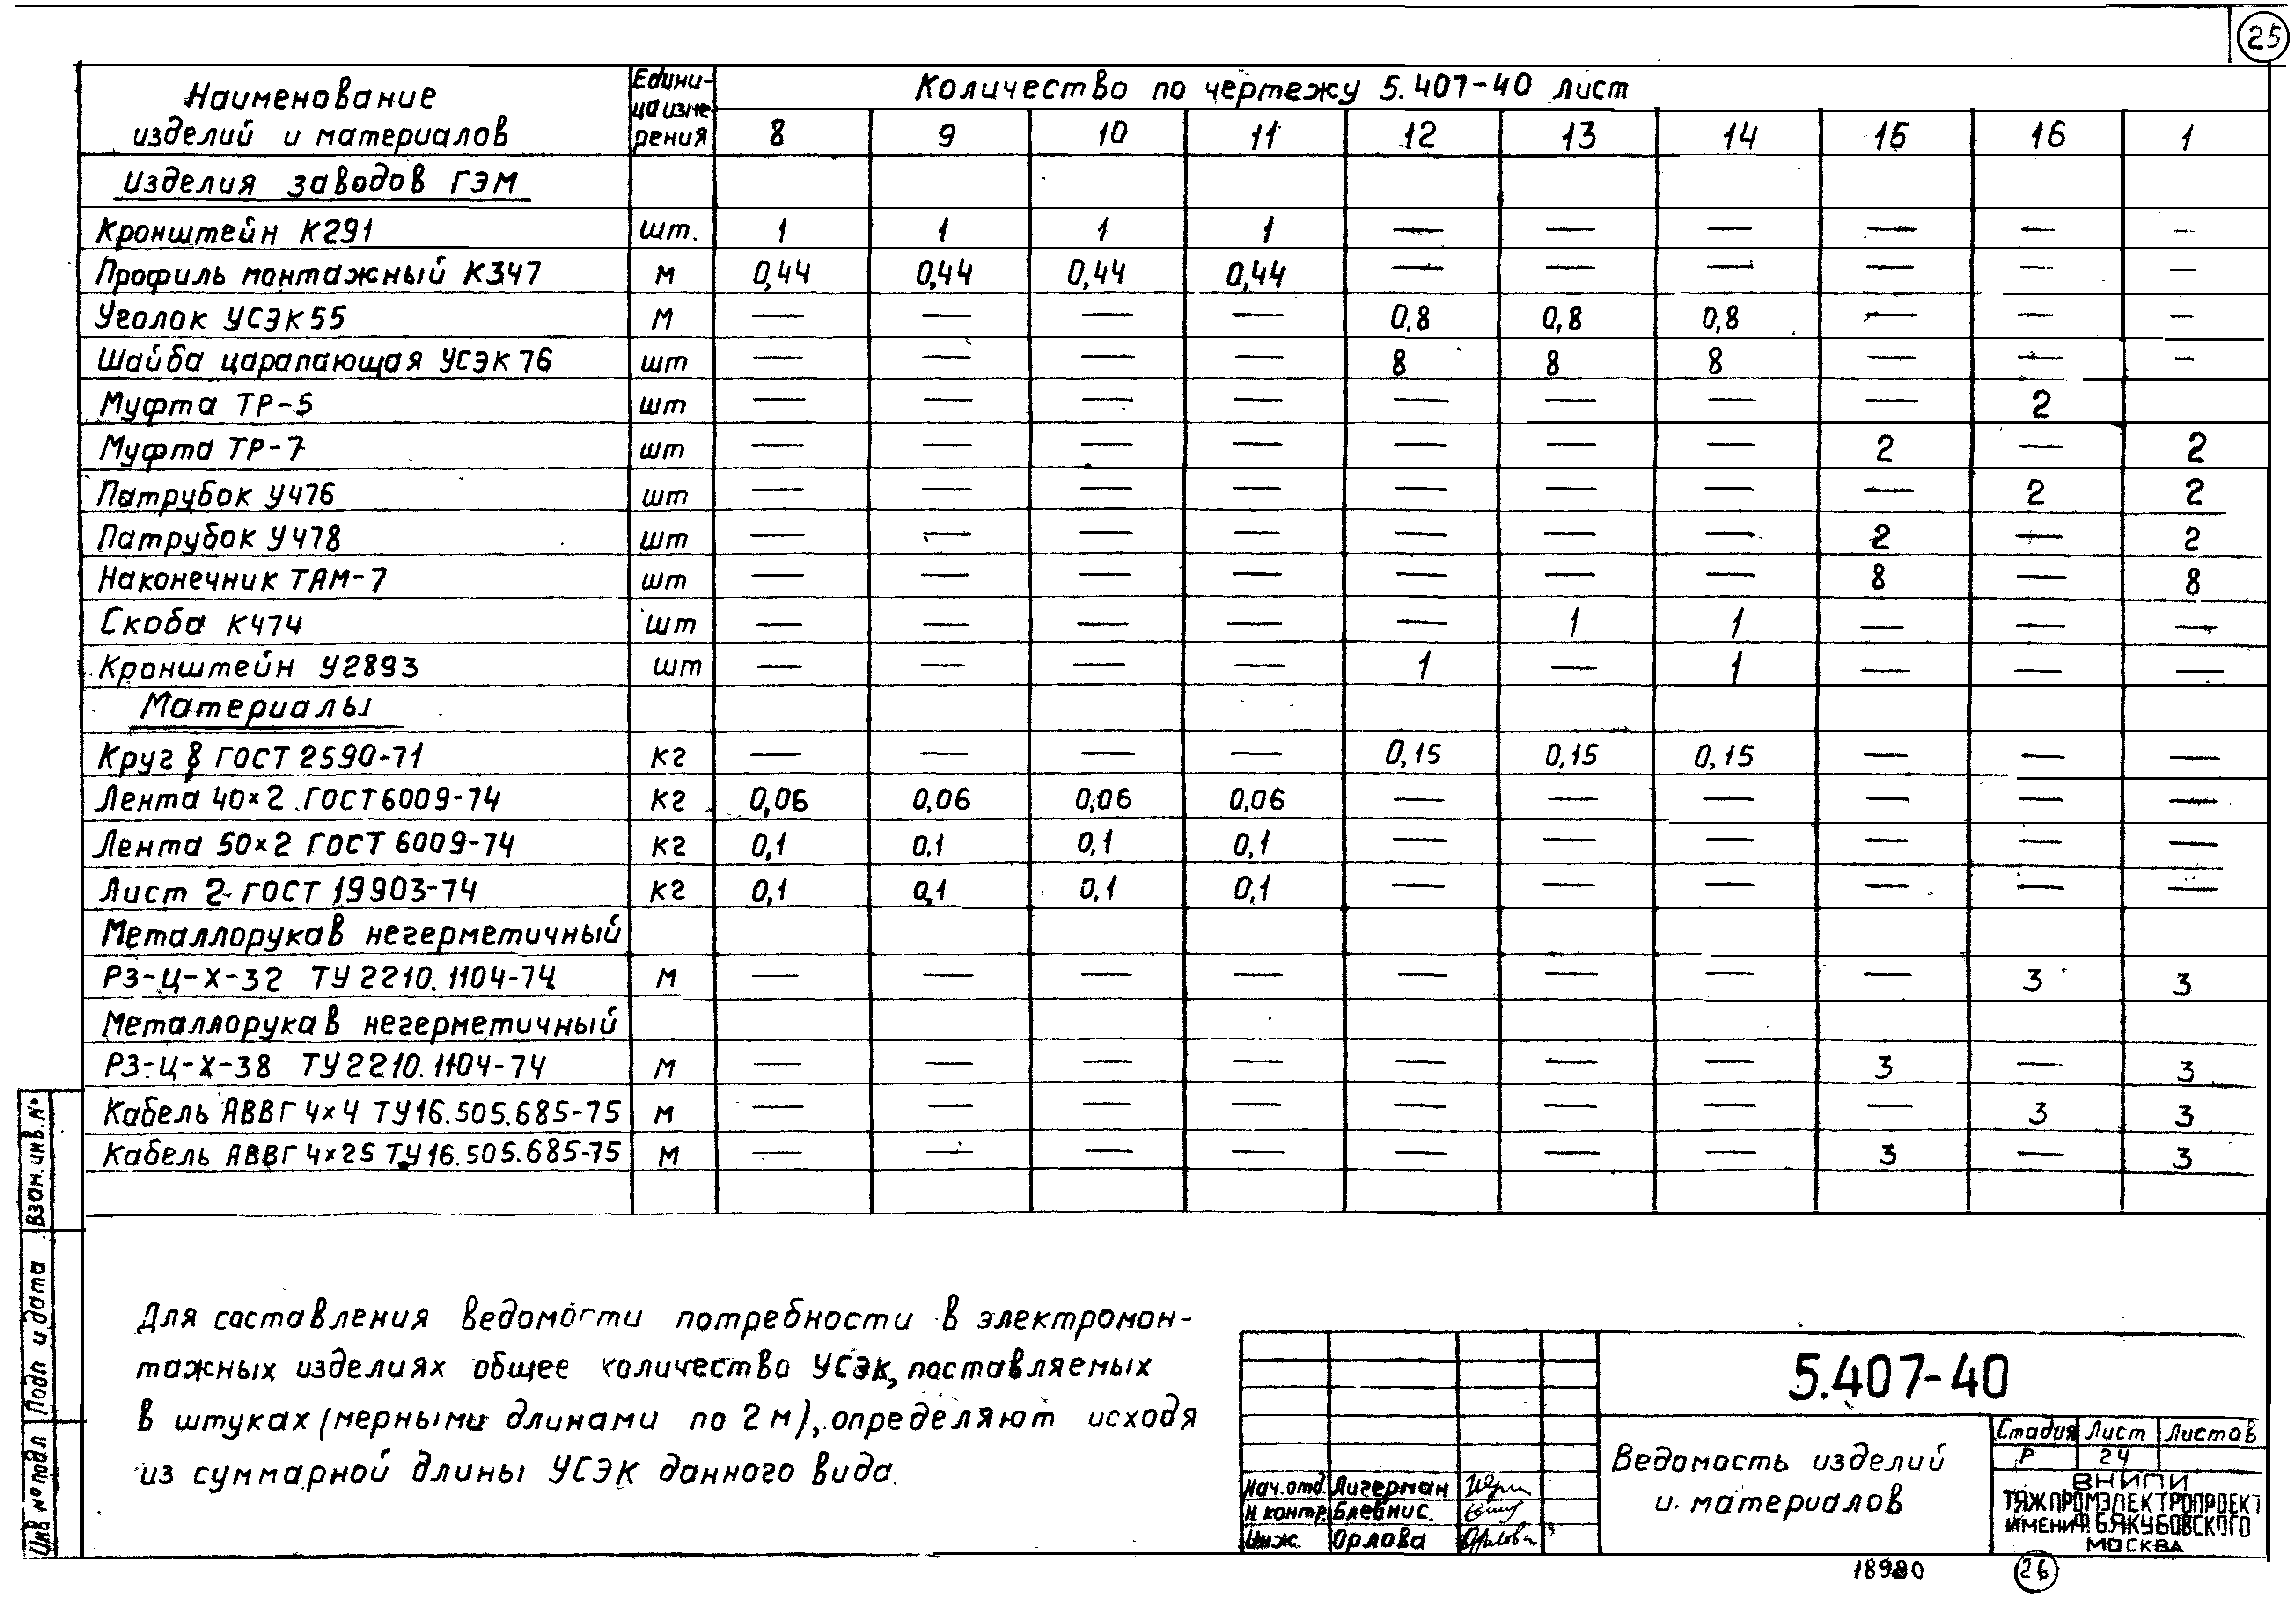 25
Наименование изделий и материалов | Едини-ца изме-рения | Количество по чертежу 5.407-40 лист
8 | 9 | 10 | 11 | 12 | 13 | 14 | 15 | 16 | 1
Изделия заводов ГЭМ
Кронштейн К291 | шт. | 1 | 1 | 1 | 1 | — | — | — | — | — | —
Профиль монтажный К347 | м | 0,44 | 0,44 | 0,44 | 0,44 | — | — | — | — | — | —
Уголок УСЭК55 | м | — | — | — | — | 0,8 | 0,8 | 0,8 | — | — | —
Шайба царапающая УСЭК76 | шт | — | — | — | — | 8 | 8 | 8 | — | — | —
Муфта ТР-5 | шт | — | — | — | — | — | — | — | — | 2 |
Муфта ТР-7 | шт | — | — | — | — | — | — | — | 2 | — | 2
Патрубок У476 | шт | — | — | — | — | — | — | — | — | 2 | 2
Патрубок У478 | шт | — | — | — | — | — | — | — | 2 | — | 2
Наконечник ТАМ-7 | шт | — | — | — | — | — | — | — | 8 | — | 8
Скоба К474 | шт | — | — | — | — | — | 1 | 1 | — | — | —
Кронштейн У2893 | шт | — | — | — | — | 1 | — | 1 | — | — | —
Материалы
Круг 8 ГОСТ 2590-71 | кг | — | — | — | — | 0,15 | 0,15 | 0,15 | — | — | —
Лента 40×2 ГОСТ6009-74 | кг | 0,06 | 0,06 | 0,06 | 0,06 | — | — | — | — | — | —
Лента 50×2 ГОСТ 6009-74 | кг | 0,1 | 0.1 | 0,1 | 0,1 | — | — | — | — | — | —
Лист 2 ГОСТ 19903-74 | кг | 0,1 | 0,1 | 0,1 | 0,1 | — | — | — | — | — | —
Металлорукав негерметичный
РЗ-Ц-Х-32 ТУ 2210.1104-74 | м | — | — | — | — | — | — | — | — | 3 | 3
Металлорукав негерметичный
РЗ-Ц-Х-38 ТУ 2210.1104-74 | м | — | — | — | — | — | — | — | 3 | — | 3
Кабель АВВГ 4×4 ТУ16.505.685-75 | м | — | — | — | — | — | — | — | — | 3 | 3
Кабель АВВГ 4×25 ТУ16.505.685-75 | м | — | — | — | — | — | — | — | 3 | — | 3
Для составления ведомости потребности в электромон-
тажных изделиях общее количество УСЭК, поставляемых
в штуках (мерными длинами по 2м), определяют исходя
из суммарной длины УСЭК данного вида.
Взам.инв.№
Подп и дата
Инв № подл
5.407-40
Ведомость изделий
и материалов
Стадия | Лист | Листов
Р | 24
ВНИПИ
ТЯЖПРОМЭЛЕКТРОПРОЕКТ
ИМЕНИ Ф.Б.ЯКУБОВСКОГО
МОСКВА
Нач.отд. Лигерман
Н контр.
Инж. Орлова Орлова
18980
26